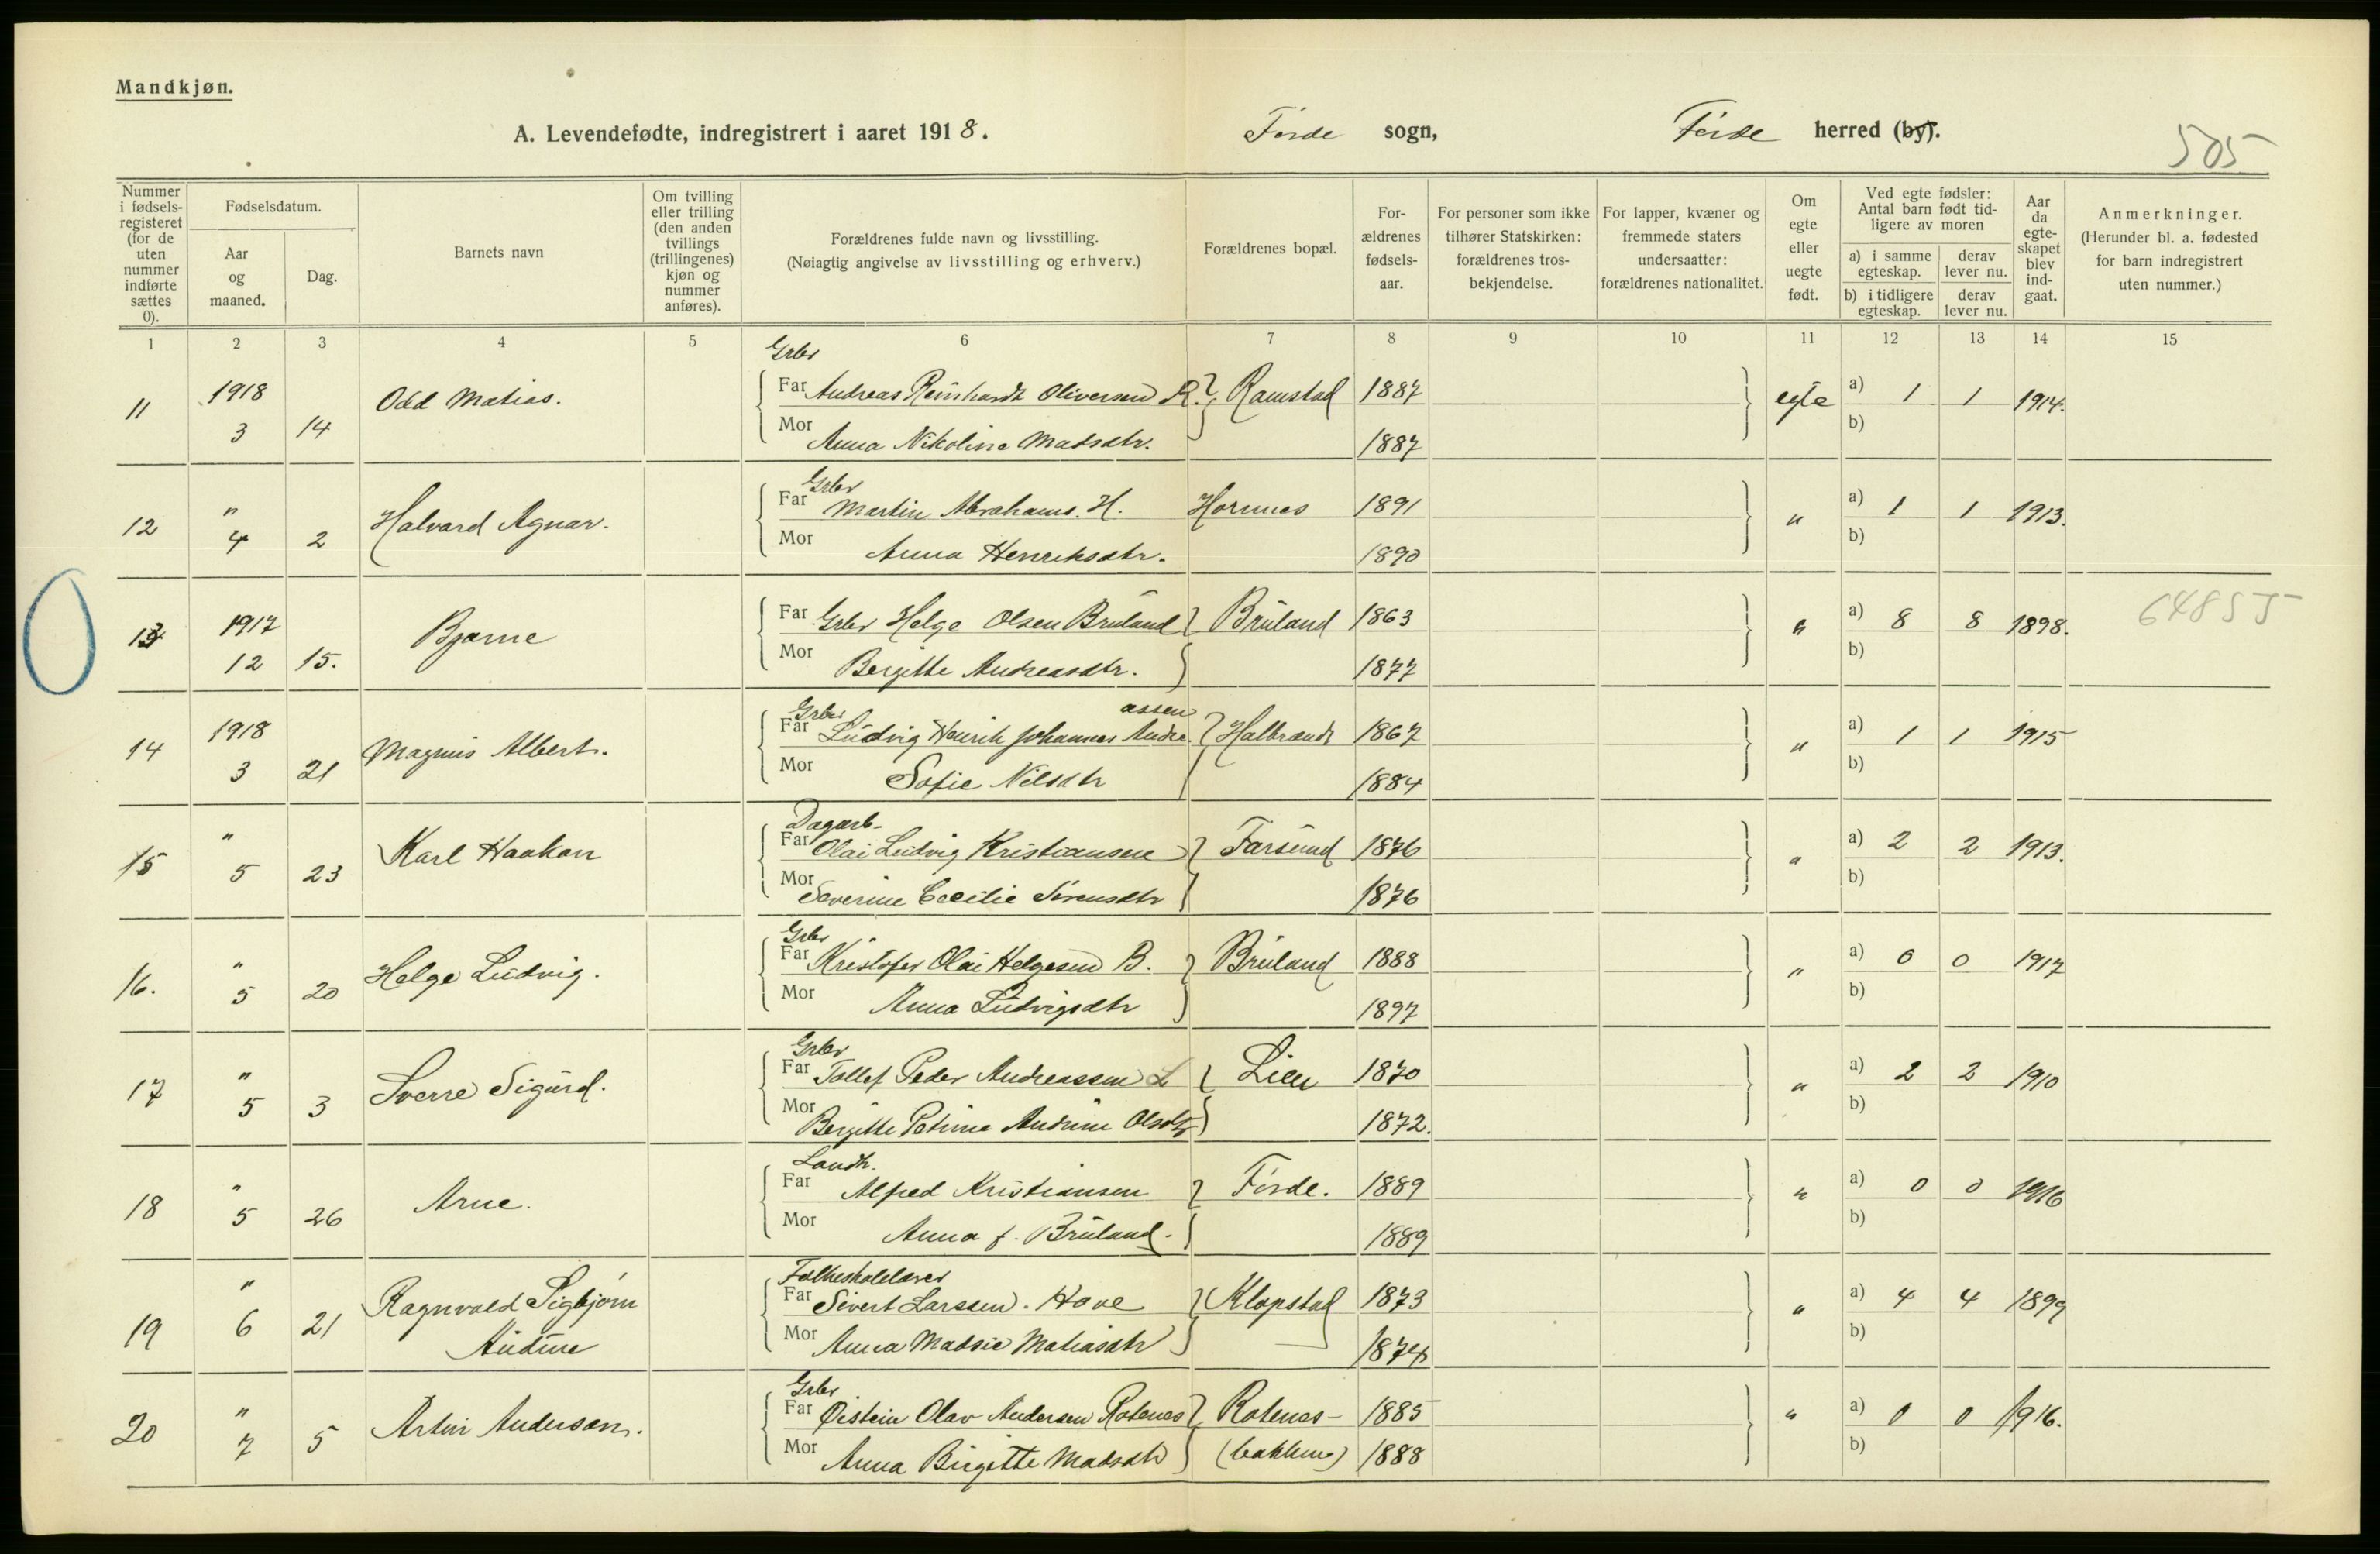 Mandkjøn.
A. Levendefødte, indregistrert i aaret 1918. Førde sogn, Førde herred (by).
505
Nummer i fødsels-registeret (for de uten nummer indførte sættes 0).
Fødselsdatum.
Aar og maaned.
Dag.
Barnets navn
Om tvilling eller trilling (den anden tvillings (trillingenes) kjøn og nummer anføres).
Forældrenes fulde navn og livsstilling.
(Nøiagtig angivelse av livsstilling og erhverv.)
Forældrenes bopæl.
For-ældrenes fødsels-aar.
For personer som ikke tilhører Statskirken: forældrenes tros-bekjendelse.
For lapper, kvæner og fremmede staters undersaatter: forældrenes nationalitet.
Om egte eller uegte født.
Ved egte fødsler: Antal barn født tid-ligere av moren
a) i samme egteskap.
derav lever nu.
b) i tidligere egteskap.
derav lever nu.
Aar da egte-skapet blev ind-gaat.
Anmerkninger.
(Herunder bl. a. fødested for barn indregistrert uten nummer.)
1 2 3 4 5 6 7 8 9 10 11 12 13 14 15
Grbr
11 1918 Odd Matias. Far Andreas Reinhardt Oliversen R. Ramstad 1887 egte a) 1 1 1914.
3 14 Mor Anna Nikoline Madsdtr. 1887 b)
Grbr
12 " Halvard Agnar. Far Martin Abrahams. H. Hornnes 1891 " a) 1 1 1913.
4 2 Mor Anna Henriksdtr. 1890 b)
13 1917 Bjarne Far Grbr Helge Olsen Bruland Bruland 1863 " a) 8 8 1898. 64855
12 15. Mor Bergitte Andreasdtr. 1877 b)
Grbr assen
14 1918 Magnus Albert. Far Ludvig Henrik Johannes Andre. Halbrendt 1867 " a) 1 1 1915
3 21 Mor Sofie Nilsdtr 1884 b)
Dagarb.
15 " Karl Haakon Far Olai Ludvig Kristiansen Farsund 1876 " a) 2 2 1913.
5 23 Mor Severine Cecilie Sørensdtr 1876 b)
Grbr
16. " Helge Ludvig. Far Kristofer Olai Helgesen B. Bruland 1888 " a) 0 0 1917
5 20 Mor Anna Ludvigsdtr 1897 b)
Grbr
17 " Sverre Sigurd. Far Tollef Peder Andreassen L Lien 1870 " a) 2 2 1910
5 3 Mor Bergitte Petrine Andrine Olsdtr 1872. b)
Landh.
18 " Arne. Far Alfred Kristiansen Førde. 1889 " a) 0 0 1916
5 26 Mor Anna f. Bruland. 1889 b)
Folkeskolelærer
19 " Ragnvald Sigbjørn Far Sivert Larssen. Hove Klopstad 1873 " a) 4 4 1899
6 21 Audine Mor Anna Madsie Matiasdtr 1874 b)
Grbr
20 " Artur Anderson. Far Øistein Olav Andersen Rotenes Rotenes - 1885 " a) 0 0 1916.
7 5 Mor Anna Birgitte Madsdtr (bakkene) 1888 b)